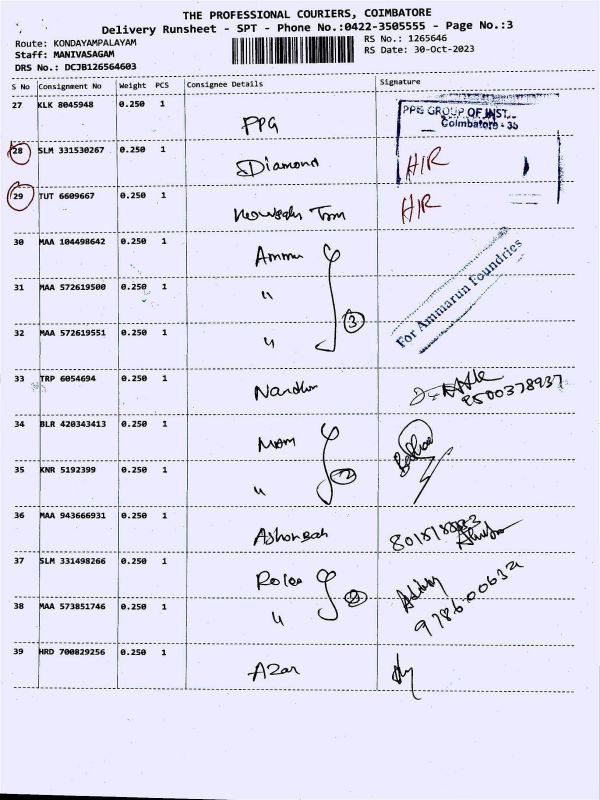 THE PROFESSIONAL COURIERS, COIMBATORE
Delivery Runsheet - SPT - Phone No.:0422-3505555 - Page No.:3
Route: KONDAYAMPALAYAM
Staff: MANIVASAGAM
DRS No.: DCJB126564603
RS No.: 1265646
RS Date: 30-Oct-2023
S No Consignment No Weight PCS Consignee Details Signature
27 KLK 8045948 0.250 1 PPG
PPG GROUP OF INST..
Coimbatore - 35
28 SLM 331530267 0.250 1 Diamond H/R
29 TUT 6609667 0.250 1 H/R
30 MAA 104498642 0.250 1 Ammu
31 MAA 572619500 0.250 1 "
3
For Ammarun Foundries
32 MAA 572619551 0.250 1 "
33 TRP 6054694 0.250 1 Nandhu
9500378937
34 BLR 420343413 0.250 1 Mam
35 KNR 5192399 0.250 1 " 2
36 MAA 943666931 0.250 1
37 SLM 331498266 0.250 1
38 MAA 573851746 0.250 1 " 2
39 HRD 700829256 0.250 1 Azar